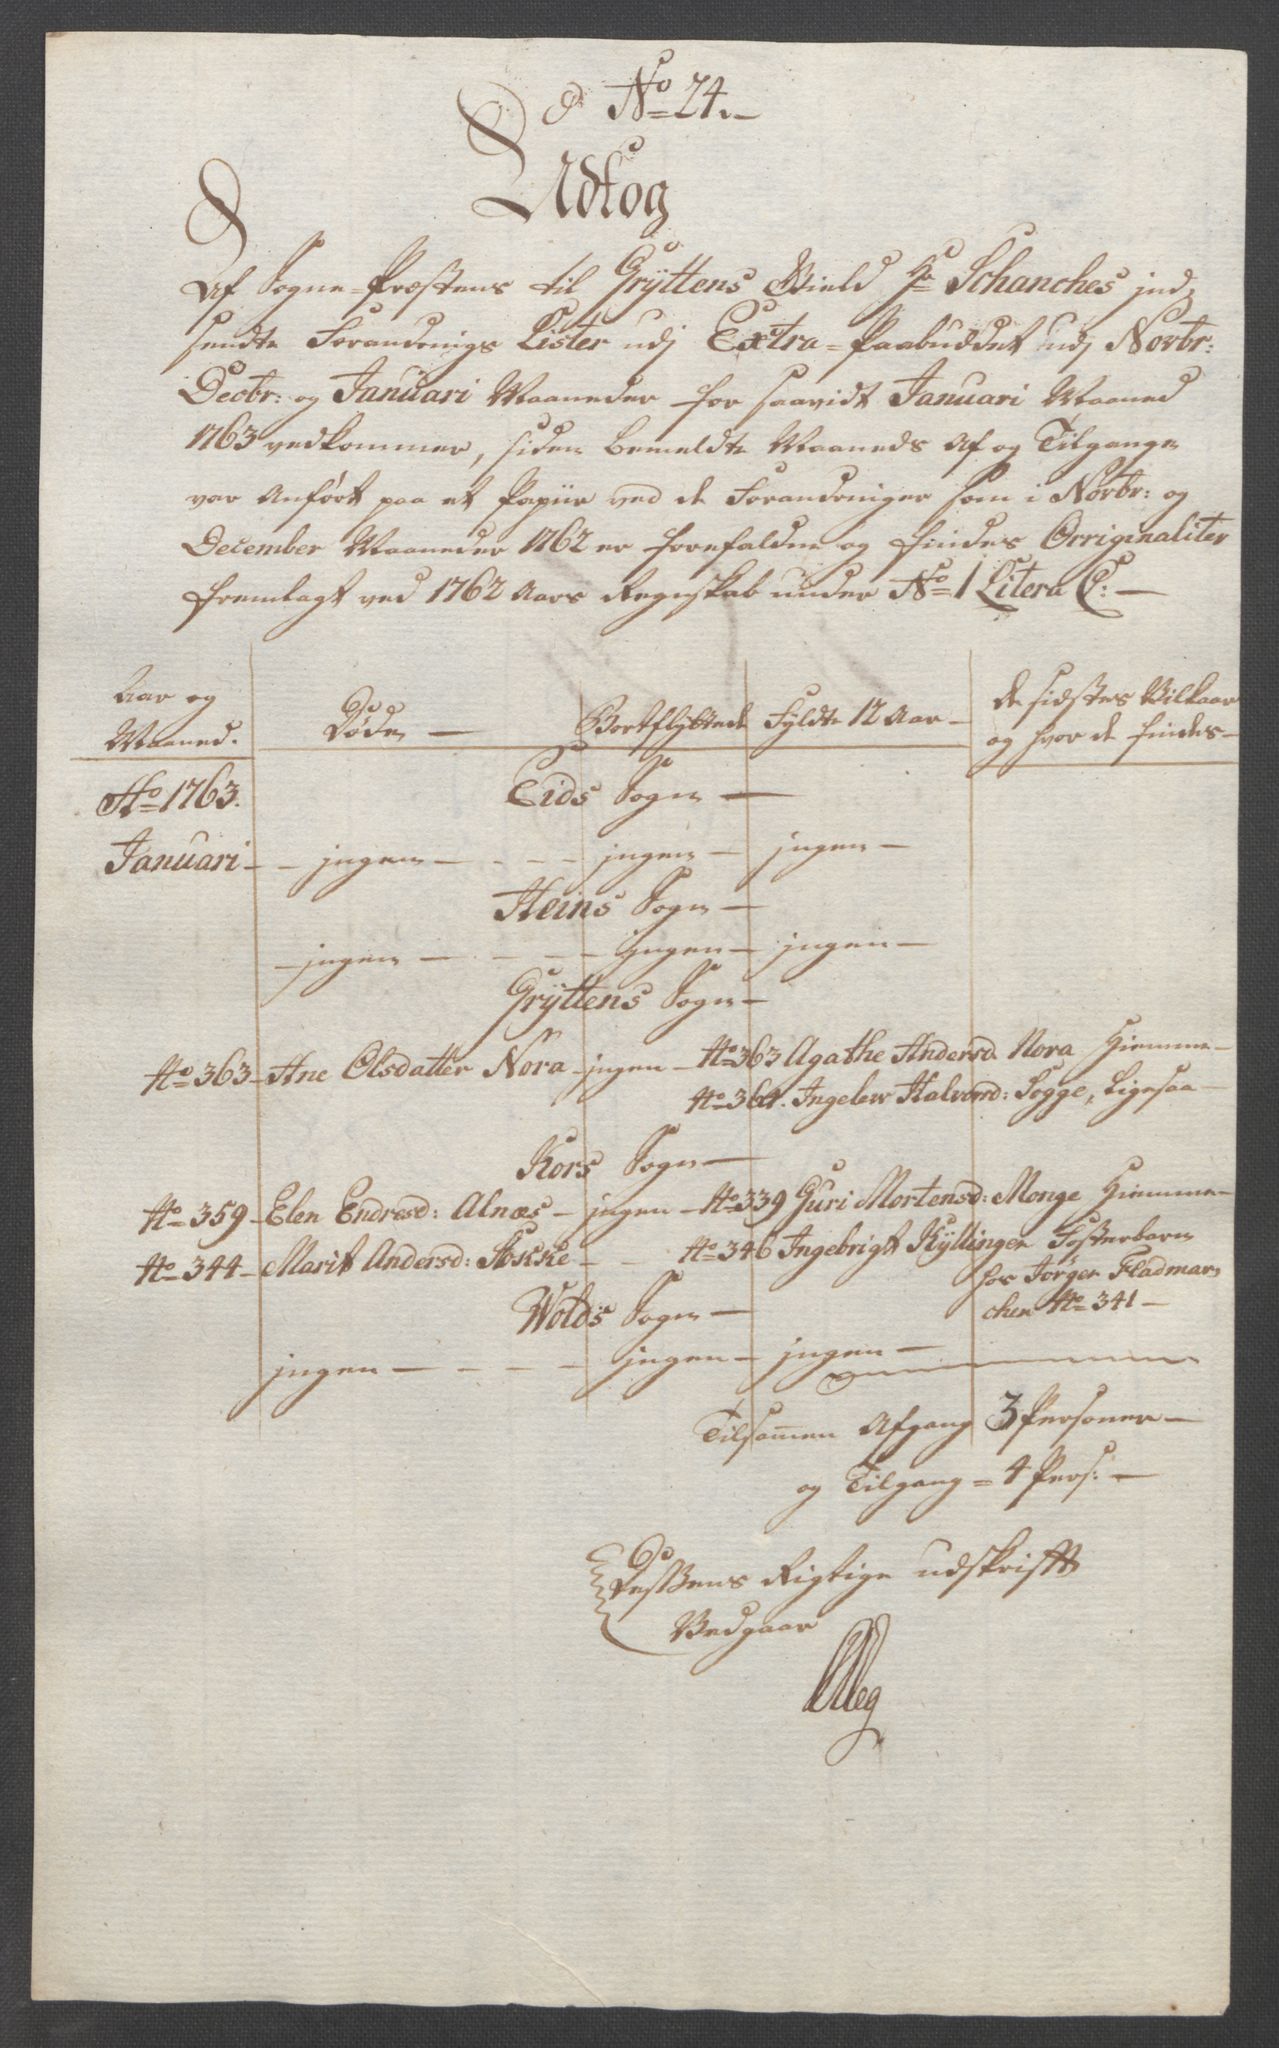 No 24.
Udtog
Af Sogne-Præstens til Grÿttens Gield Hr Schanches ind,
sendte Forandrings Lister udj Extra-Paabuddet udj Novbr:
Decbr: og Januari Maaneder for saavidt Januari Maaned
1763 vedkommer, siden bemeldte Maaneds Af og Tilgange
var Anført paa et Papiir ved de Forandringer som i Novbr: og
December Maaneder 1762 er forefaldne og findes Orriginaliter
fremlagt ved 1762 Aars Regnskab under No 1 Litera C: —
Aar og Maaned. Døde — Bortflÿttede Fyldte 12 Aar — de sidstes Vilkaar og hvor de findes —
Ao 1763. Eids Sogn —
Januari — jngen — jngen — jngen —
Heins Sogn —
— jngen — jngen — jngen —
Grÿttens Sogn —
No 363 — Ane Olsdatter Nora — jngen — No 363 Agathe Andersd Nora Hiemme —
No 364. Ingeler Halvord: Sogge, Ligesaa —
Kors Sogn —
No 359 — Elen Endresd: Alnæs — jngen — No 339 Guri Mortensd: Monge Hiemme —
No 344 — Marit Andersd: Stokke — No 346 Ingebrigt Kÿllingen Fosterbarn
hos Jørgen Fladmar,
chen No 341 —
Wolds Sogn —
jngen — jngen — jngen —
Tilsammen Afgang 3 Personer —
og Tilgang = 4 Pers: —
Dessens Rigtige udskrifft
Vedgaar